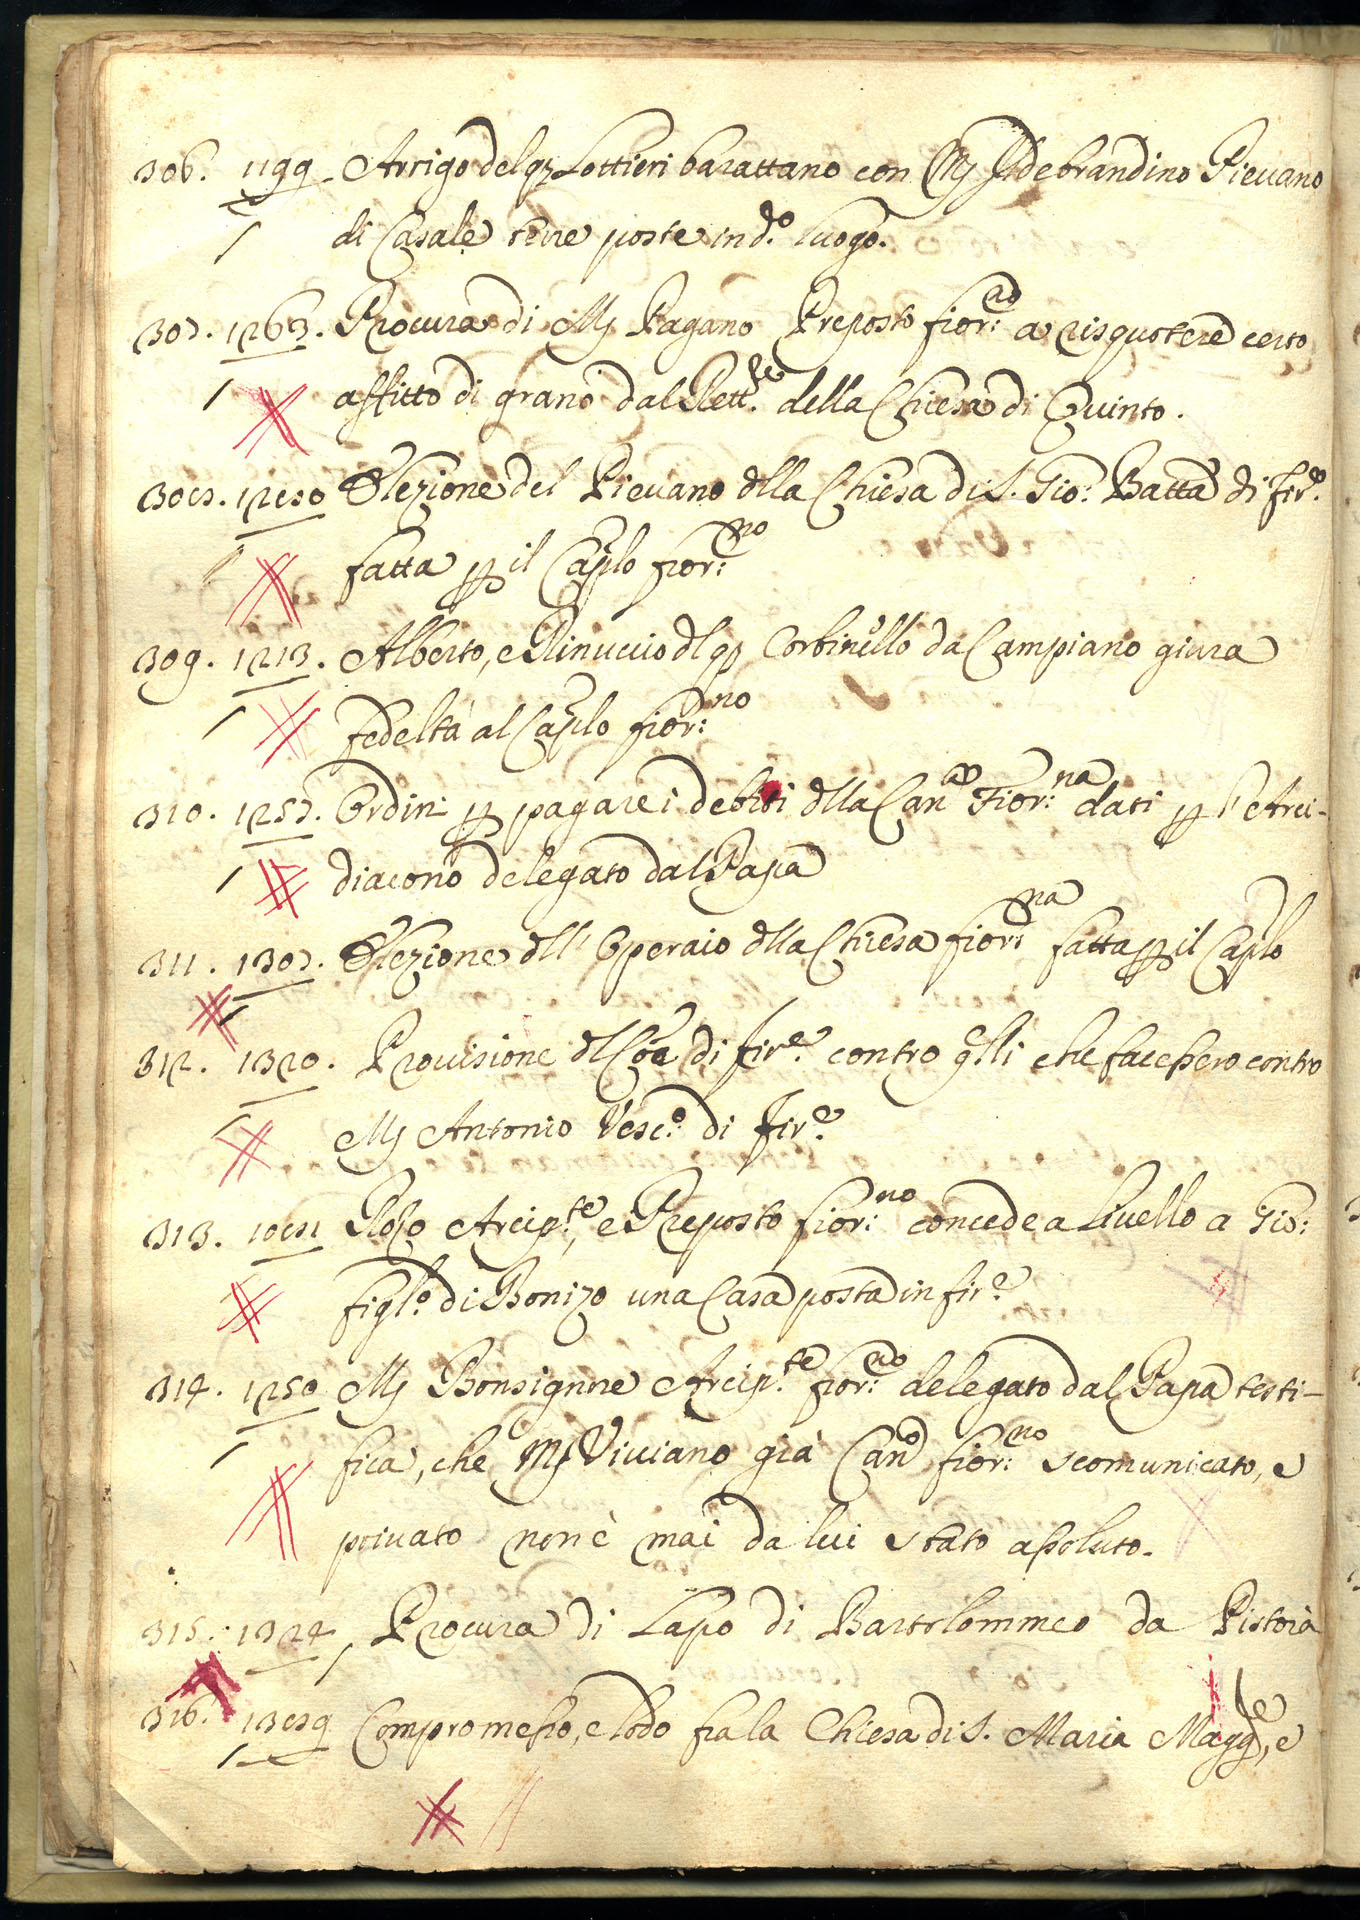 306. 1199 Arrigo del qz Lottieri barattano con Mṣ Ildebrandino Pievano
di Casale terre poste in d.º luogo.
307. 1263. Procura di Mṣ Pagano Preposto fior:no a risquotere certo
affitto di grano dal Rett.re della Chiesa di Quinto.
308. 1280 Elezione del Pievano dlla Chiesa di S. Gio: Batta di fir.e
fatta p il Caplo fior:no
309. 1213. Alberto, e Rinuccio dl qz Corbinello da Campiano giura
fedeltà al Caplo fior:no
310. 1257. Ordini p pagare i debiti dlla Can.ca Fior:na dati p l'Arci-
diacono delegato dal Papa
311. 1307. Elezione dll' Operaio dlla Chiesa fior:na fatta p il Caplo
312. 1320. Provisione dl Cõe di fir.e contro qlli che facessero contro
Mṣ Antonio Vesc.º di fir.e
313. 1081 Rozo Arcip.te, e Preposto fior:no concede a Livello a Gio:
figl.º di Bonizo una Casa posta in fir.e
314. 1250 Mṣ Bonsignore Arcip.te fior:no delegato dal Papa testi-
fica, che Mṣ Viviano già Can.o fior:no scomunicato, e
privato non è mai da lui stato assoluto.
315. 1324 Procura di Lapo di Bartolommeo da Pistoia
316. 1389 Compromesso, e lodo fra la Chiesa di S. Maria Magg.re, e